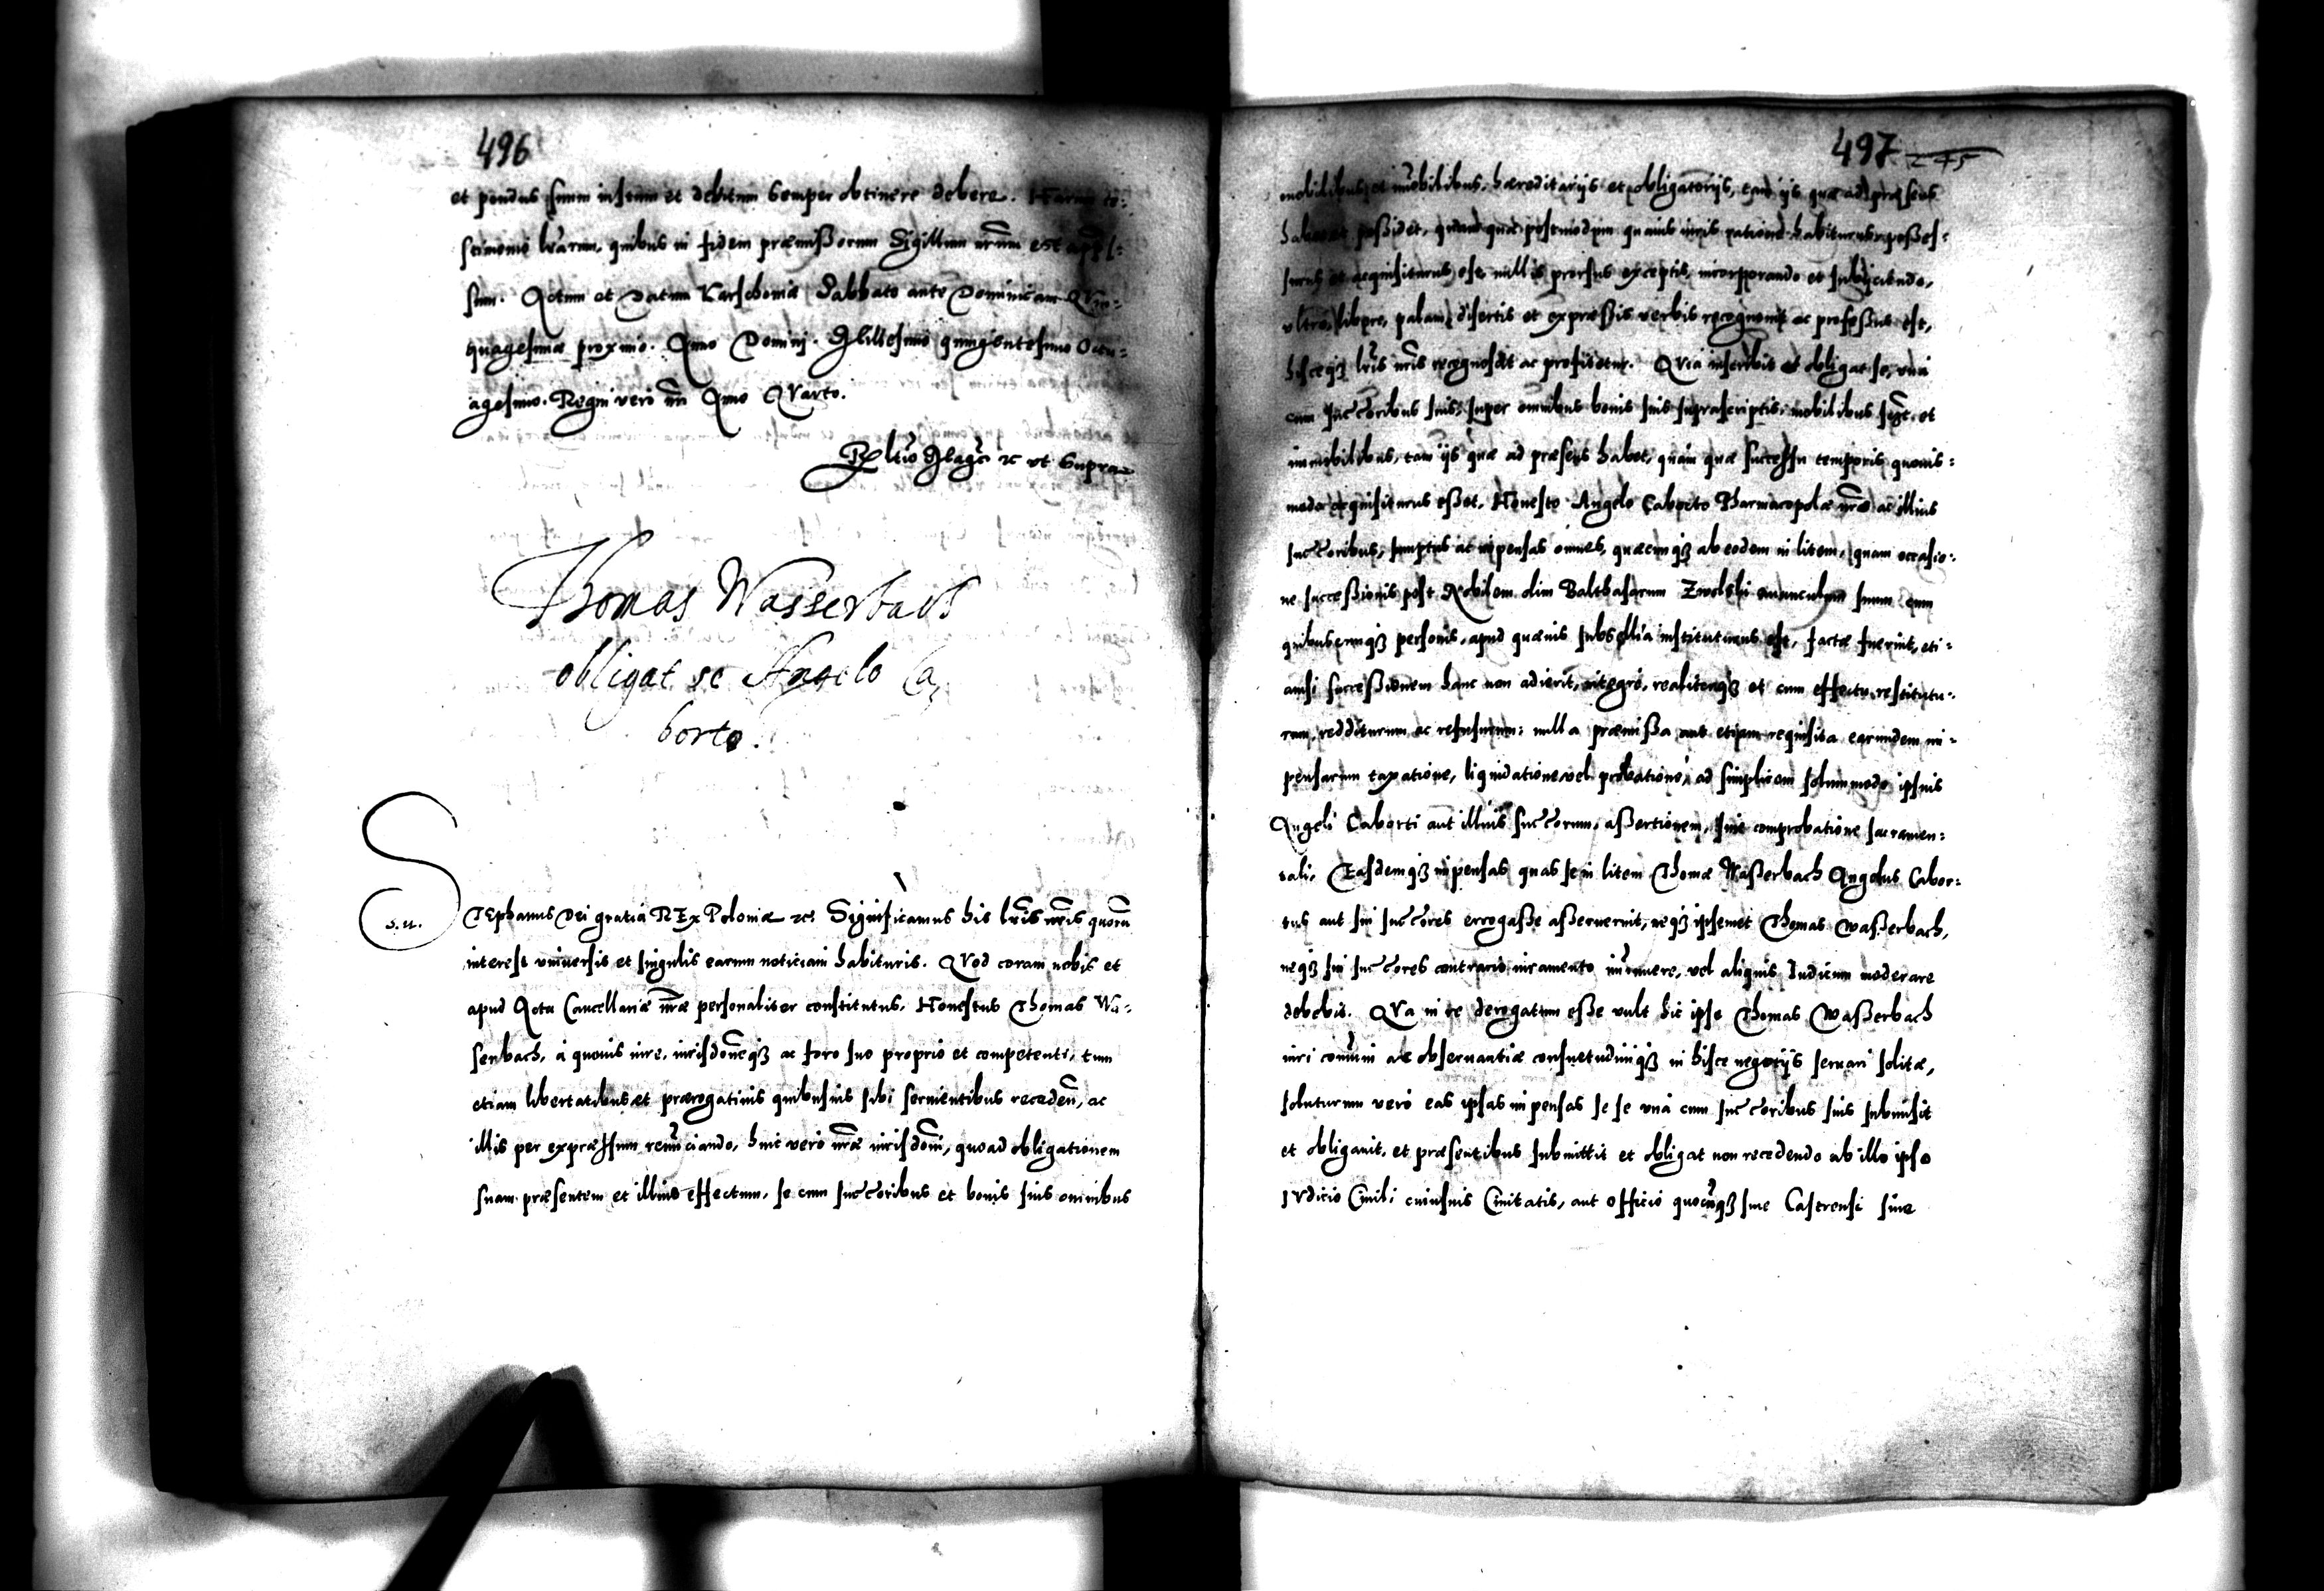 496
et pondus suum iustum et debitum semper obtinere debere. Harum te:
stimonio lrarum, quibus in fidem præmissorum Sigillum nrum est appres:
sum. Actum et Datum Varschouiæ Sabbato ante Dominicam QVin:
quagesimæ proximo. Anno Domini. Millesimo quingentesimo Octu:
agesimo. Regni vero nri Anno QVarto.
Rltio Magci zc vt supra
Thomas Wasserbach
obligat se Angelo Ca,
borto.
s.u.
STEphanus Dei gratia REx Poloniæ zc. Significamus his lris nris quorũ
interest vniuersis et singulis earum noticiam habituris. QVod coram nobis et
apud Acta Cancellariæ nræ personaliter constitutus, Honestus Thomas Wa:
senbach, à quouis iure, iurisdoneqз ac foro suo proprio et competenti, tum
etiam libertatibus et prærogatiuis quibusuis sibi seruientibus receden, ac
illis per expræssum renũciando, huic vero nræ iurisdoni, quoad obligationem
suam præsentem et illius effectum, se cum succoribus et bonis suis omnibus
497 245
mobilibus et imobilibus, hæreditarijs et obligatorijs, tam ijs quæ ad præsens
habet et possidet, quam quæ postmodum quauis iuris ratione habiturus, posses:
surus et acquisiturus est, nullis prorsus exceptis, incorporando et subijciendo,
vltro, libere, palam, disertis et expræssis verbis recognouit ac professus est,
hisceqз lris nris recognoscit ac profitetur. QVia inscribit et obligat se, vnà
cum succoribus suis, super omnibus bonis suis suprascriptis, mobilibus sct. et
immobilibus, tam ijs quæ ad præsens habet, quam quæ successu temporis quouis:
modo acquisiturus esset, Honesto Angelo Caborto Pharmacopolæ nro ac illius
succoribus, sumptus ac inpensas omnes, quæcunqз ab eodem in litem, quam occasio:
ne successionis post Nobilem olim Balthasarum Zwolski auunculum suum cum
quibuscunqз personis, apud quæuis subsellia instituturus est, factæ fuerint, eti:
amsi successionem hanc non adierit, integrè, realiterqз et cum effectu restitutu:
rum, redditurum ac refusurum: nulla præmissa aut etiam requisita earundem im:
pensarum taxatione, liquidatione vel probatione, ad simplicem solummodo ipsius
Angeli Caborti aut illius succorum, assertionem, sine comprobatione sacramen:
tali. Easdemqз inpensas quas se in litem Thomæ Wasserbach Angelus Cabor:
tus aut sui succores erogasse asseruerint, neqз ipsemet Thomas Wasserbach,
neqз sui succores contrario iuramento inuere, vel aliquis Iudicum moderare
debebit. QVa in re derogatum esse vult hic ipse Thomas Wasserbach
iuri comuni ac obseruantiæ consuetudiniqз in hisce negotijs seruari solitæ,
soluturum verò eas ipsas inpensas se se vnà cum succoribus suis submisit
et obligauit, et præsentibus submittit et obligat non recedendo ab illo ipso
IVdicio Ciuili cuiusuis Ciuitatis, aut officio quocũqз siue Castrensi siue